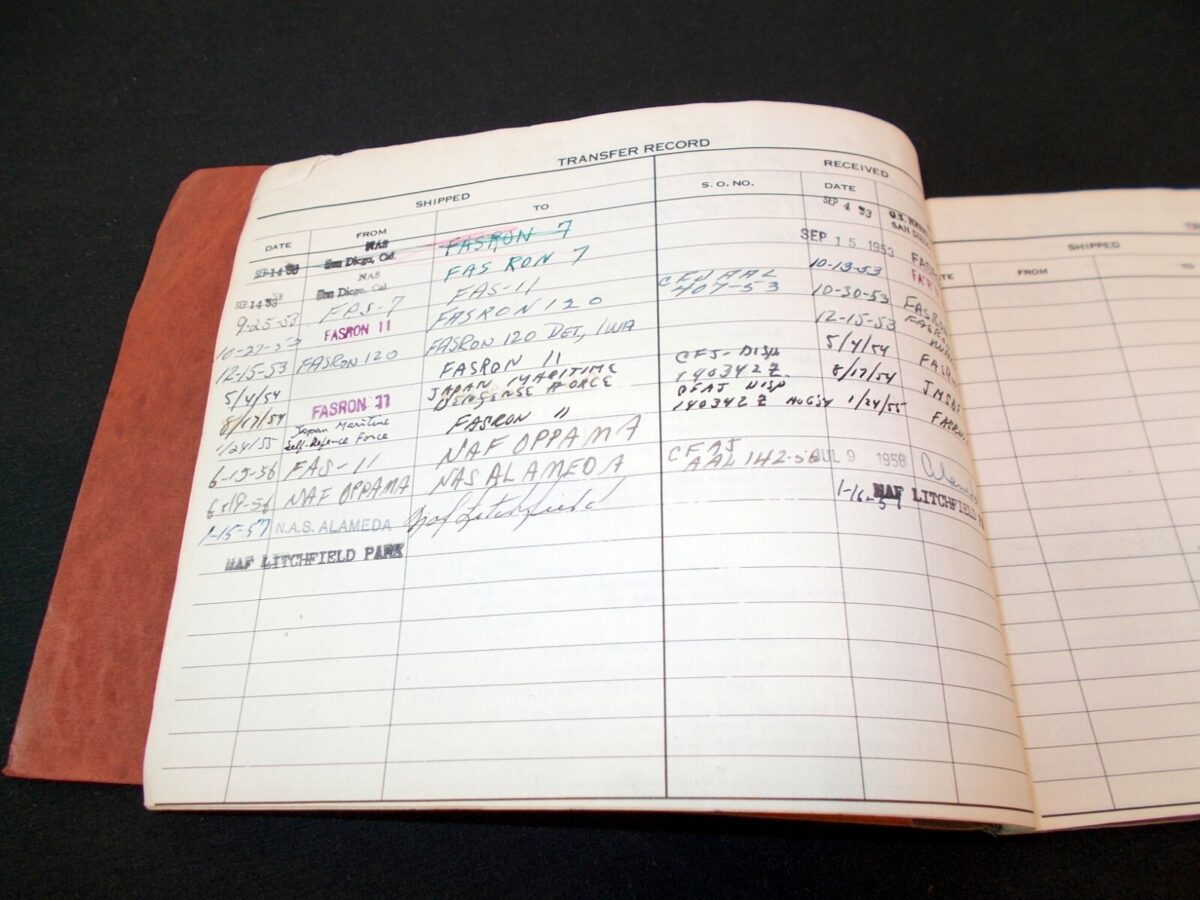 TRANSFER RECORD
SHIPPED RECEIVED
DATE FROM TO S. O. NO. DATE
SEP 14 53 NAS San Diego, Cal. FASRON 7 SEP 4 53
SEP 14 53 NAS San Diego, Cal. FASRON 7 SEP 15 1953
9-25-53 FAS-7 FAS-11 10-13-53
10-27-53 FASRON 11 FASRON 120 407-53 10-30-53
12-15-53 FASRON 120 FASRON 120 DET, IWA 12-15-53
5/4/54 FASRON 11 5/4/54
8/17/54 FASRON 11 JAPAN MARITIME DEFENSE FORCE CFJ-DISP 140342Z 8/17/54
1/24/55 Japan Maritime Self-Defence Force FASRON 11 CFAJ DISP 140342Z 1/24/55
6-13-56 FAS-11 NAF OPPAMA
6-19-56 NAF OPPAMA NAS ALAMEDA CFAJ AAL 142-56 JUL 9 1956
1-15-57 N.A.S. ALAMEDA Naf Litchfield 1-16-57 NAF LITCHFIELD
NAF LITCHFIELD PARK
SHIPPED
FROM TO